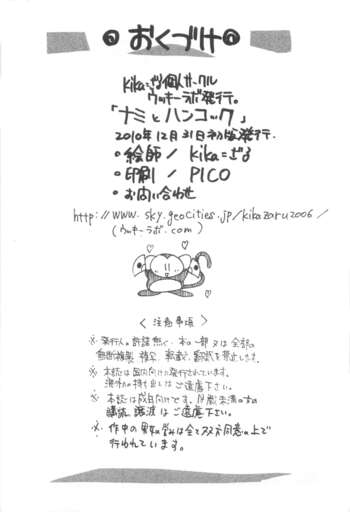 おくづけ
kika=ざる個人サークル
ウッキーラボ発行。
「ナミとハンコック」
2010年12月31日初版発行.
・絵師/kika=ざる
・印刷/PICO
・お問い合わせ
http://www.sky.geocities.jp/kikazaru2006/
(ウッキーラボ.com)
〈注意事項〉
※発行人の許諾無く、本の一部又は全部の
無断複製、転載、翻訳を禁止します。
※本誌は国内向けに発行されています。
海外への持ち出しはご遠慮下さい。
※本誌は成人向けです。18歳未満の方の
購読、譲渡はご遠慮下さい。
※作中の男女の営みは全て双方同意の上で
行われています。